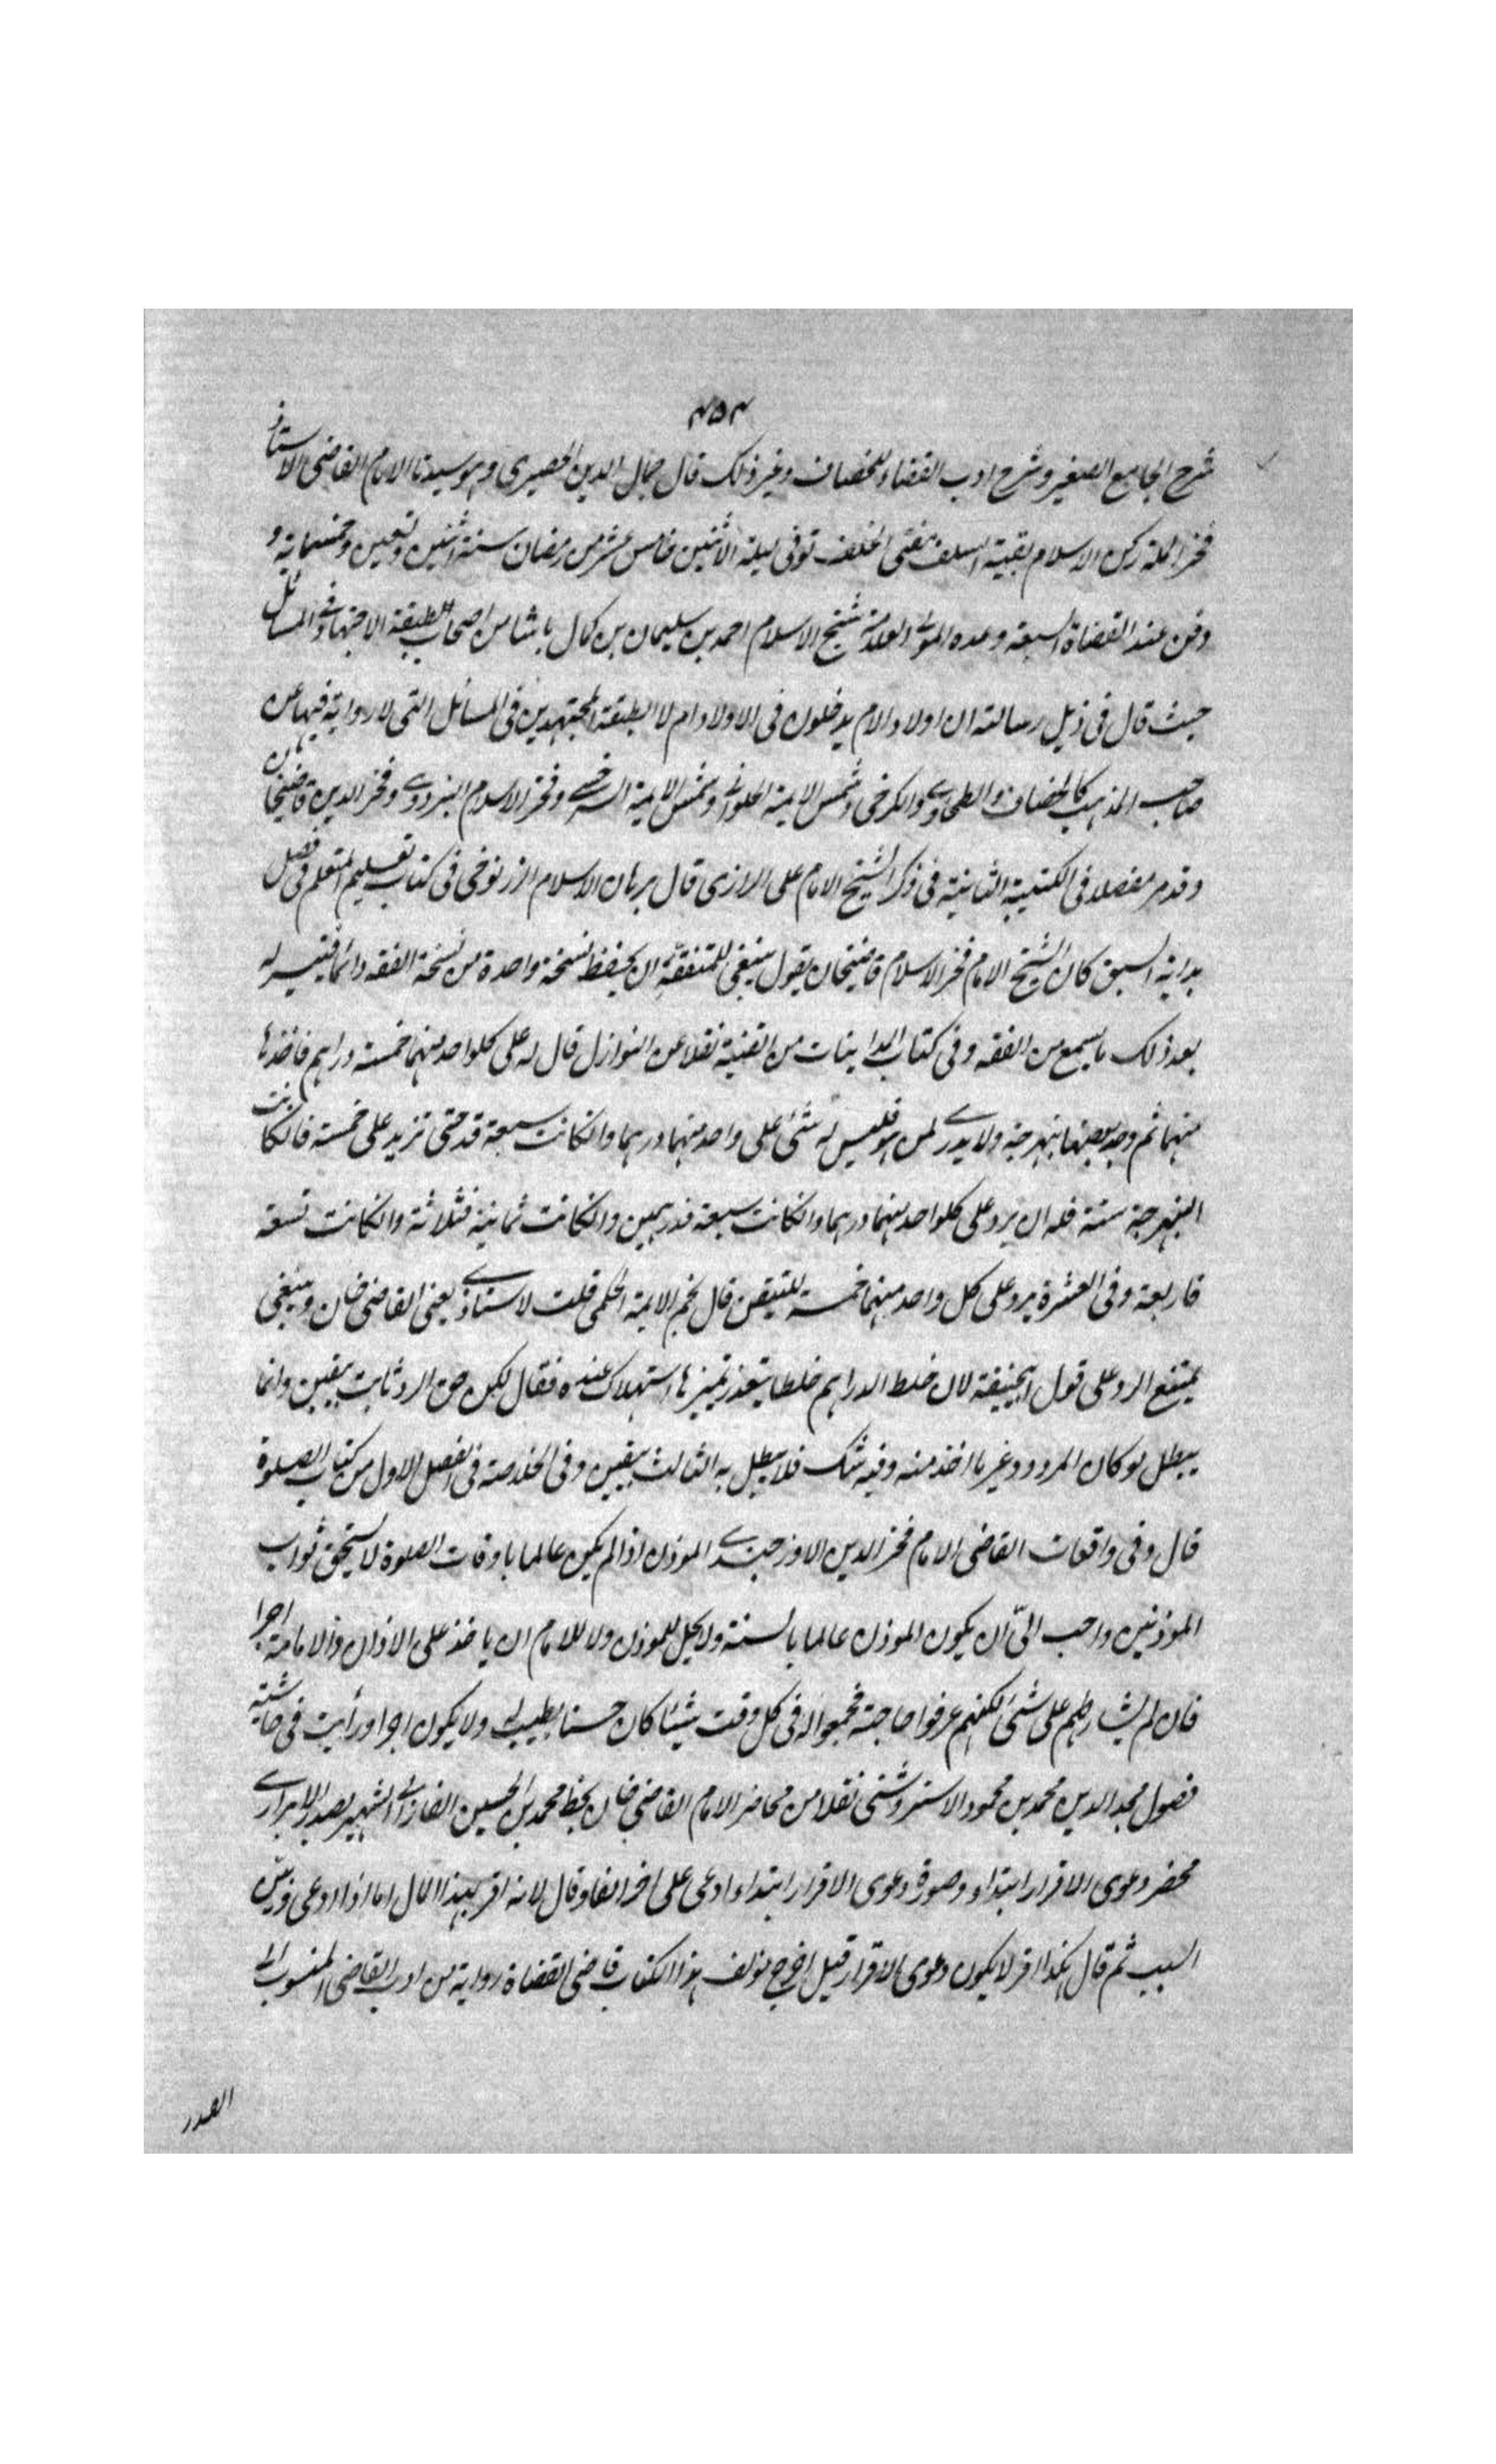 ٤٥٤
شرح الجامع الصغير وشرح ادب القضاء للخصاف وغير ذلك قال جمال الدين الحصيرى وهو سيدنا الامام القاضى الاستاذ
فخر الملة ركن الاسلام بقية السلف مفتى الخلف توفى ليلة الاثنين خامس عشر من رمضان سنة اثنين وتسعين وخمسمائة و
دفن عند القضاة السبعة وعده المولى العلامة شيخ الاسلام احمد بن سليمان بن كمال باشا من اصحاب الطبقة الاجتهاد فى المسائل
حيث قال فى ذيل رسالته ان اولاد الام يدخلون فى الاولاد ام لا الطبقة المجتهدين فى المسائل التى لا رواية فيها عن
صاحب المذهب كالخصاف والطحاوى والكرخى وشمس الايمة الحلوانى وشمس الايمة السرخسى وفخر الاسلام البزدوى وفخر الدين قاضيخان
وقد مر مفصلا فى الكتيبة الثانية فى ذكر الشيخ الامام على الرازى قال برهان الاسلام الزرنوخى فى كتاب تعليم المتعلم فى فصل
بداية السبق كان الشيخ الامام فخر الاسلام قاضيخان يقول ينبغى للمتفقه ان يحفظ نسخة واحدة من نسخة الفقه دائما فتيسر له
بعد ذلك ما يسمع من الفقه وفى كتاب المداينات من القنية نقلا عن النوازل قال له على كلواحد منهما خمسة دراهم فاخذها
منهما ثم وجد بعضها بنهرجة ولا يدرى لمن هو فليس له شئ على واحد منهما درهما وانكانت سبعة قد حتى تزيد على خمسة فانكانت
البنهرجة ستة فله ان يرد على كلواحد منهما درهما وانكانت سبعة فدرهمين وانكانت ثمانية فثلاثة وانكانت تسعة
فاربعة وفى العشرة يرد على كل واحد منهما خمسة للتيقن قال نجم الايمة الحكمى قلت لاستاذى يعنى القاضى خان وينبغى
يمتنع الرد على قول ابيحنيفة لان خلط الدراهم خلطا يتعذر تميزها استهلاك عنده فقال لكن حق الرد ثابت بيقين وانما
يبطل لو كان المردود غير ما اخذ منه وفيه شك فلا يبطل به الثالث بيقين وفى الخلاصة فى الفصل الاول من كتاب الصلوة
قال وفى واقعات القاضى الامام فخر الدين الاوزجندى الموذن اذا لم يكن عالما باوقات الصلوة لا يستحق ثواب
الموذنين واحب الىّ ان يكون الموذن عالما بالسنة ولا يحل للموذن ولا للامام ان ياخذ على الاذان والامامة اجرا
فان لم يشارطهم على شئ لكنهم عرفوا حاجته فجمعوا له فى كل وقت شيئا كان حسنا يطيب له ولا يكون اجرا ورأيت فى حاشية
فصول مجد الدين محمد بن محمود الاستروشنى نقلا من محاضر الامام القاضى خان بخط محمد بن الحسين الشهير
محضر دعوى الاقرار ابتداء وصورة دعوى الاقرار ابتداء ادعى على اخر الفا وقال لانه اقر بهذا المال اما اذا ادعى
السبب ثم قال هكذا اقر لا يكون دعوى الاقرار قيل اخرج مؤلف هذا الكتاب قاضى القضاة رواية من ادب القاضى المنسوب الى
الصدر